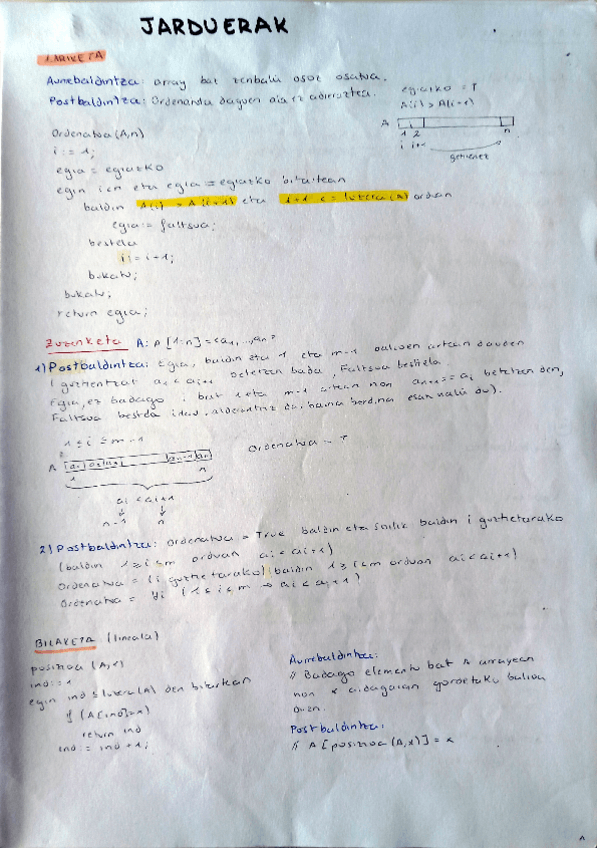 JARDUERAK
1.ARIKETA
Aurrebaldintza: array bat zenbaki osoz osatua.
Postbaldintza: Ordenandu dagoen ala ez adieraztea.
egiazko = T
A(i) > A(i+1)
A
1 2 n
i i+1
gehienez
Ordenatua (A,n)
i := 1;
egia = egiazko
egin i<n eta egia = egiazko bitartean
baldin A(i) > A(i+1) eta i+1 <= luzera(A) orduan
egia := faltsua;
bestela
i := i+1;
bukatu;
bukatu;
return egia;
Zuzenketa A: A [1..n] = <a1,...,an>
1) Postbaldintza: Egia, baldin eta 1 eta n-1 balioen artean dauden
i guztientzat ai < ai+1 betetzen bada, Faltsua bestela
Egia, ez badago i bat 1 eta n-1 artean non ai+1 >= ai betetzen den,
Faltsua bestela (alderantziz da, baina berdina esan nahi du).
1 ≤ i ≤ n-1
A
1 n
Ordenatua = T
ai < ai+1
n-1 n
2) Postbaldintza: ordenatua = True baldin eta soilik baldin i guztietarako
(baldin 1≥i≤n orduan ai < ai+1)
Ordenatua = (i guztietarako) (baldin 1≥i≤n orduan ai < ai+1)
Ordenatua = ∀i (1≤i≤n → ai < ai+1)
BILAKETA (lineala)
posizioa (A,x)
ind := 1
egin ind ≤ luzera(A) den bitartean
if (A[ind]=x)
return ind
ind := ind +1;
Aurrebaldintza:
// Badago elementu bat A arrayean
non x aldagaian gordetako balioa
duen.
Postbaldintza:
// A [posizioa (A,x)] = x
1